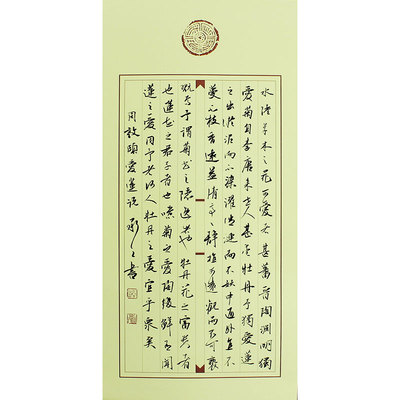 水陸草木之花可愛者甚蕃晉陶淵明獨
愛菊自李唐來世人甚愛牡丹予獨愛蓮
之出淤泥而不染濯清漣而不妖中通外直不
蔓不枝香遠益清亭亭靜植可遠觀而不可褻
玩焉予謂菊花之隱逸者也牡丹花之富貴者
也蓮花之君子者也噫菊之愛陶後鮮有聞
蓮之愛同予者何人牡丹之愛宜乎眾矣
周敦頤愛蓮說 書